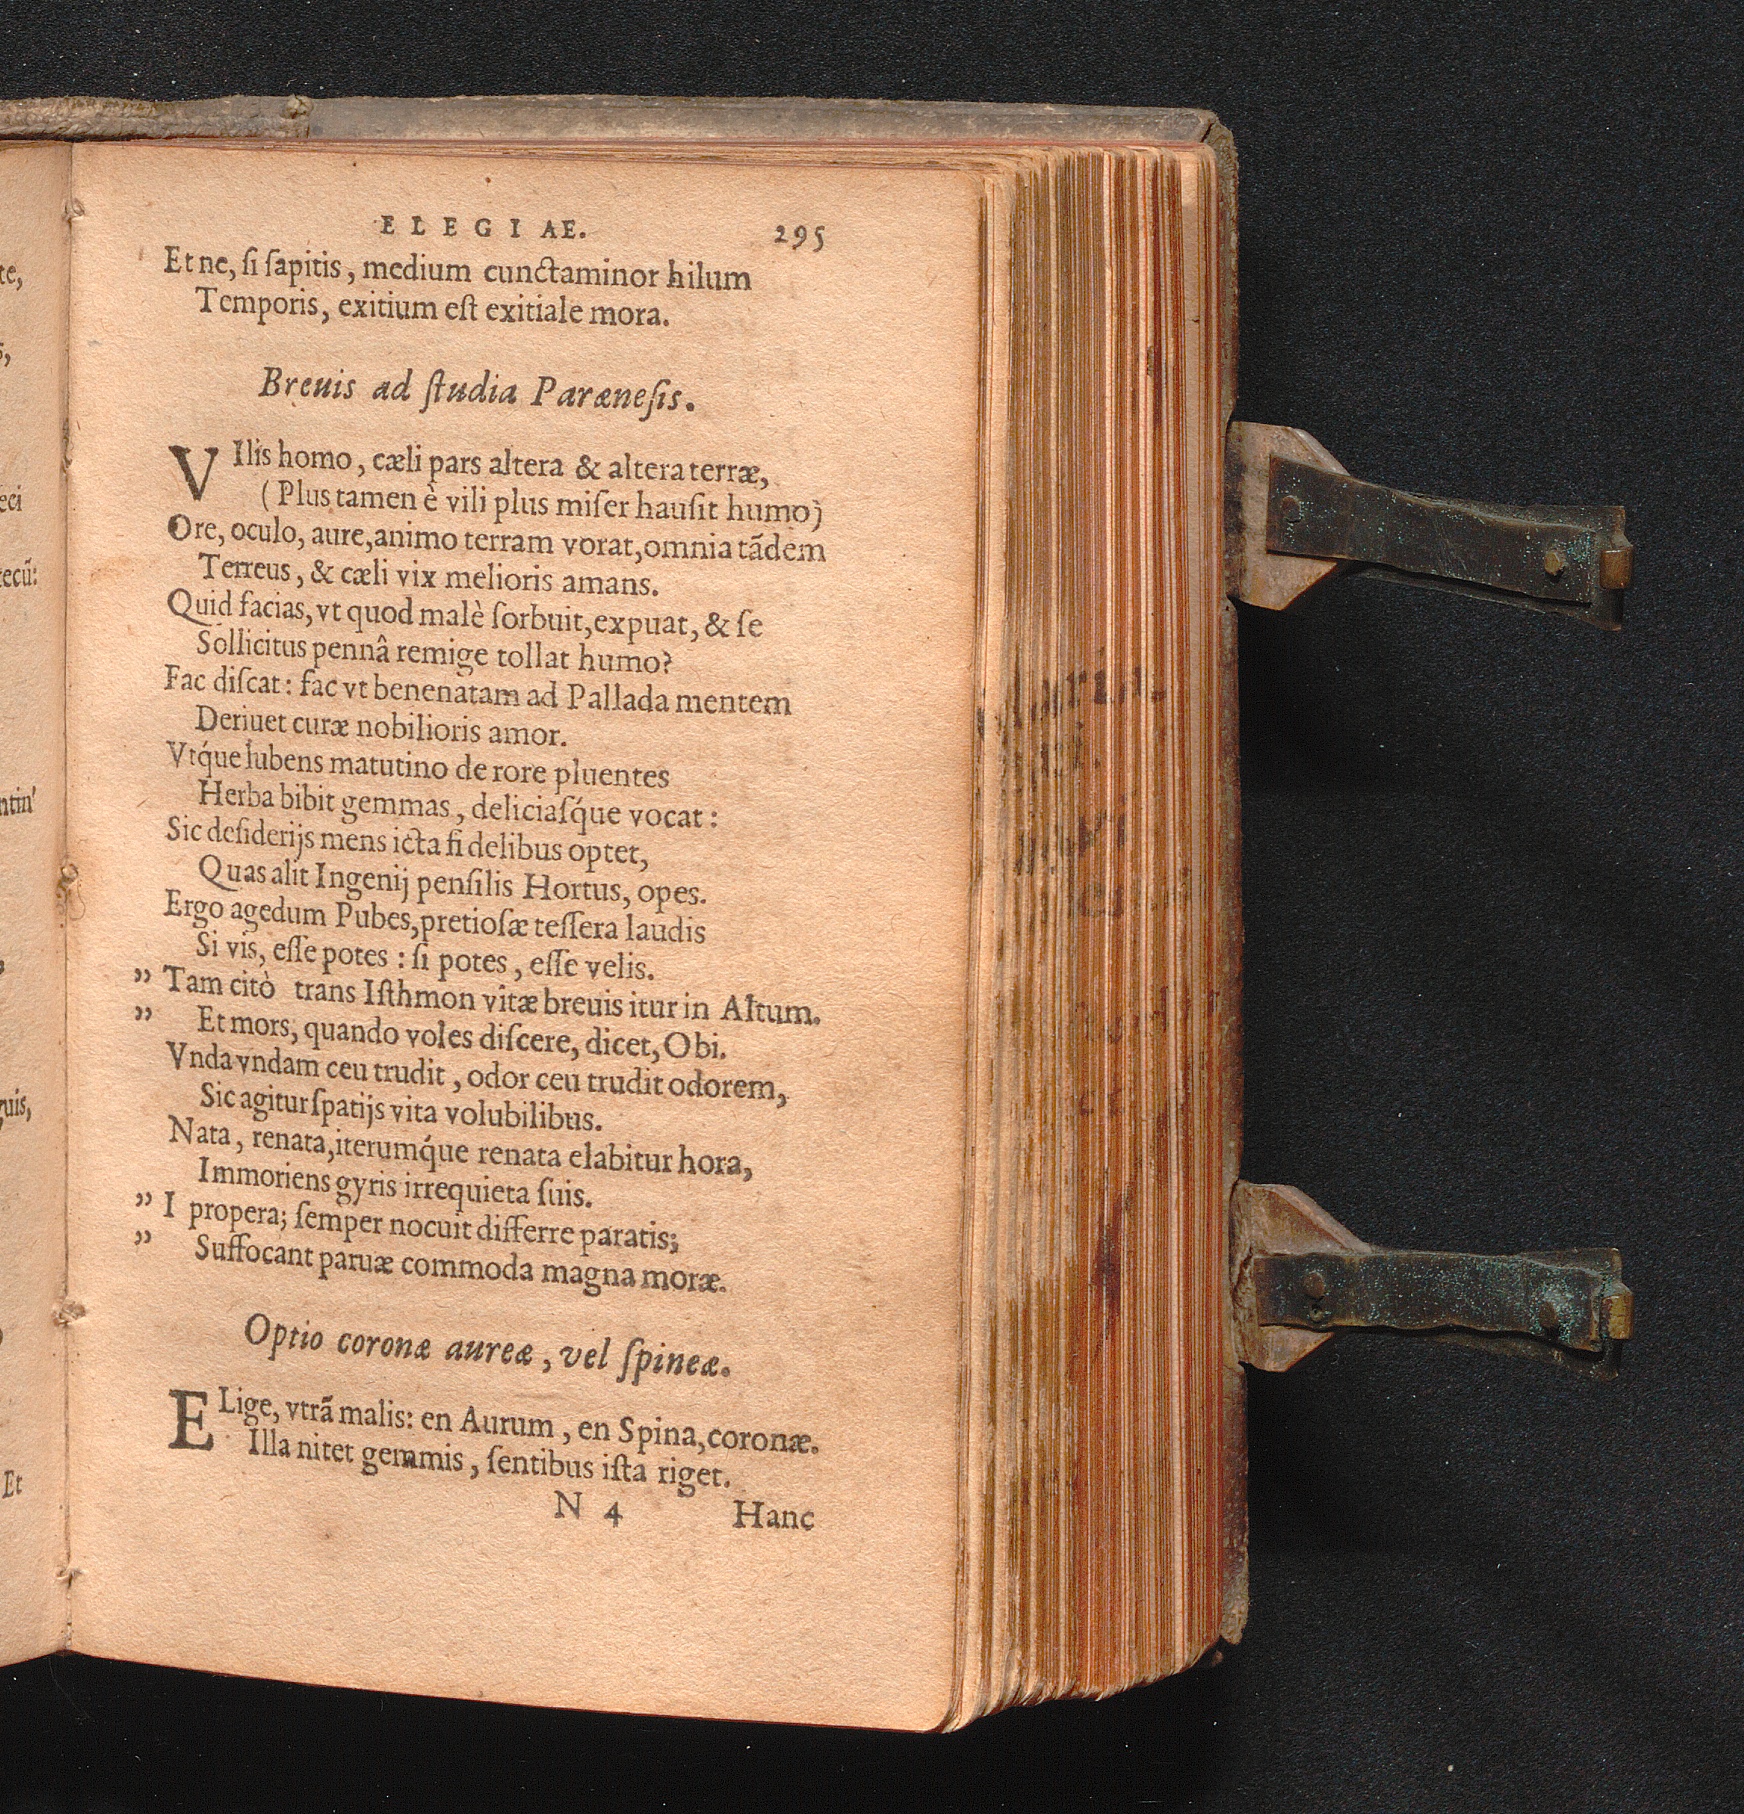 ELEGIAE. 295
Et ne, ſi ſapitis, medium cunctaminor hilum
Temporis, exitium eſt exitiale mora.
Breuis ad ſtudia Parænesis.
VIlis homo, cæli pars altera & altera terræ,
(Plus tamen è vili plus miſer hauſit humo)
Ore, oculo, aure, animo terram vorat, omnia tãdem
Terreus, & cæli vix melioris amans.
Quid facias, vt quod malè ſorbuit, expuat, & ſe
Sollicitus pennâ remige tollat humo?
Fac diſcat: fac vt benenatam ad Pallada mentem
Deriuet curæ nobilioris amor.
Vtq́ue lubens matutino de rore pluentes
Herba bibit gemmas, deliciaſq́ue vocat:
Sic deſiderijs mens icta fidelibus optet,
Quas alit Ingenij penſilis Hortus, opes.
Ergo agedum Pubes, pretioſæ teſſera laudis
Si vis, eſſe potes: ſi potes, eſſe velis.
” Tam citò trans Iſthmon vitæ breuis itur in Altum.
” Et mors, quando voles diſcere, dicet, Obi.
Vnda vndam ceu trudit, odor ceu trudit odorem,
Sic agitur ſpatijs vita volubilibus.
Nata, renata, iterumq́ue renata elabitur hora,
Immoriens gyris irrequieta ſuis.
” I propera; ſemper nocuit differre paratis;
” Suffocant paruæ commoda magna moræ.
Optio coronæ aureæ, vel ſpineæ.
ELige, vtrã malis: en Aurum, en Spina, coronæ.
Illa nitet gemmis, ſentibus iſta riget.
N 4 Hanc
te,
s,
eci
tecũ:
ntin'
guis,
Et